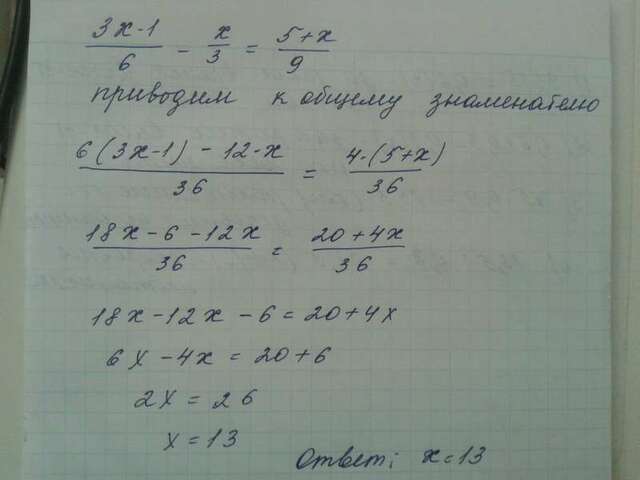 (3x-1)/6 - x/3 = (5+x)/9
приводим к общему знаменателю
(6(3x-1) - 12·x)/36 = (4·(5+x))/36
(18x-6-12x)/36 = (20+4x)/36
18x-12x-6=20+4x
6x-4x=20+6
2x=26
x=13
Ответ; x=13